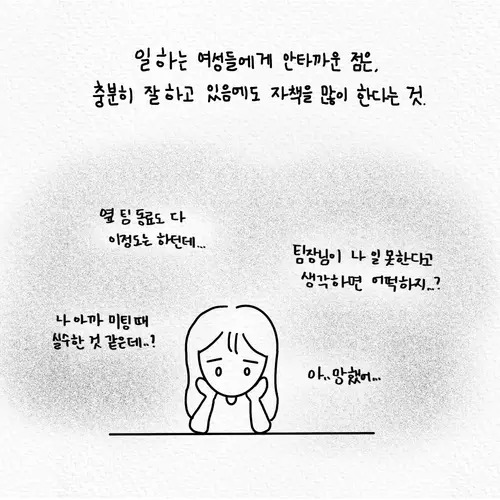 일하는 여성들에게 안타까운 점은,
충분히 잘하고 있음에도 자책을 많이 한다는 것.
옆 팀 동료도 다
이정도는 하던데...
팀장님이 나 일 못한다고
생각하면 어떡하지..?
나 아까 미팅 때
실수한 것 같은데..?
아.. 망했어...